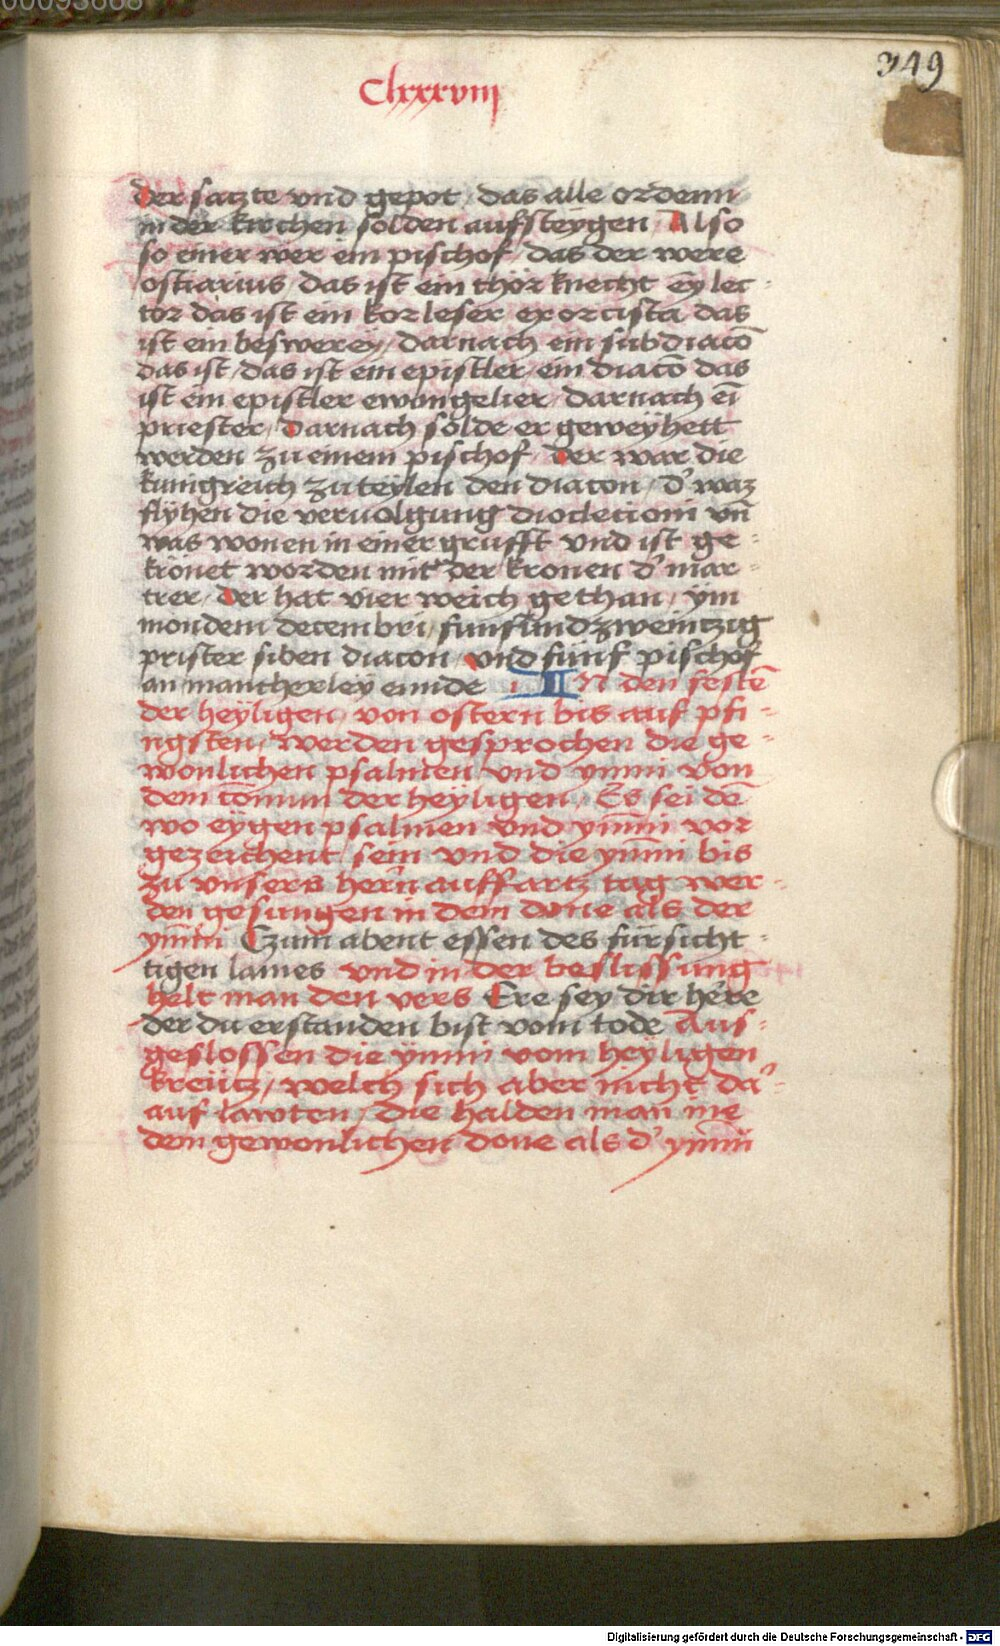 00093668
349
Clxxxviij
der satzte vnd gepot / das alle ordenn
in der kirchen solden aufsteygen / Also
so einer wer ein pischof / das der were
ostiarius / das ist ein thör knecht ey lec-
tor das ist ein korleser exorcista das
ist ein beswerer / darnach ein subdiacō
das ist / das ist ein epistler / ein diacō das
ist ein epistler ewangelier / darnach eī
priester / darnach solde er geweyhett
werden zu einem pischof / der war die
kunigreich zuteylen den diacon / d' waz
flyhen die veruolgung dioclecioni vn̄
was wonen in einer grufft vnd ist ge-
krönet worden mit der kronen d' mar-
trer / der hat vier weich gethan / ym
mondem decembri / funfundzweintzig
prister siben diacon / vnd funf pischof
an mancherley ennde i IN den festē
der heyligen / von ostern bis auf pfi-
ngsten / werden gesprochen die ge-
wonlichen psalmen vnd ymni von
dem cōmun der heyligen / Es sei dē
wo eygen psalmen vnd ym̄ni vor
gezeichent / sein vnd die ym̄ni bis
zu vnsers hern auffartz tag wer-
den gesungen in dem done als der
ym̄ni Czum abent essen des fursicht-
tigen lames vnd in der beslissung
helt man den vers Ere sey dir here
der du erstanden bist vom tode Aus-
geslossen die ymni vom heyligen
kreutz / welch sich aber nicht da'-
auf lawten / die halden man ine
dem gewonlichen done als d' ym̄ni
Digitalisierung gefördert durch die Deutsche Forschungsgemeinschaft - DFG